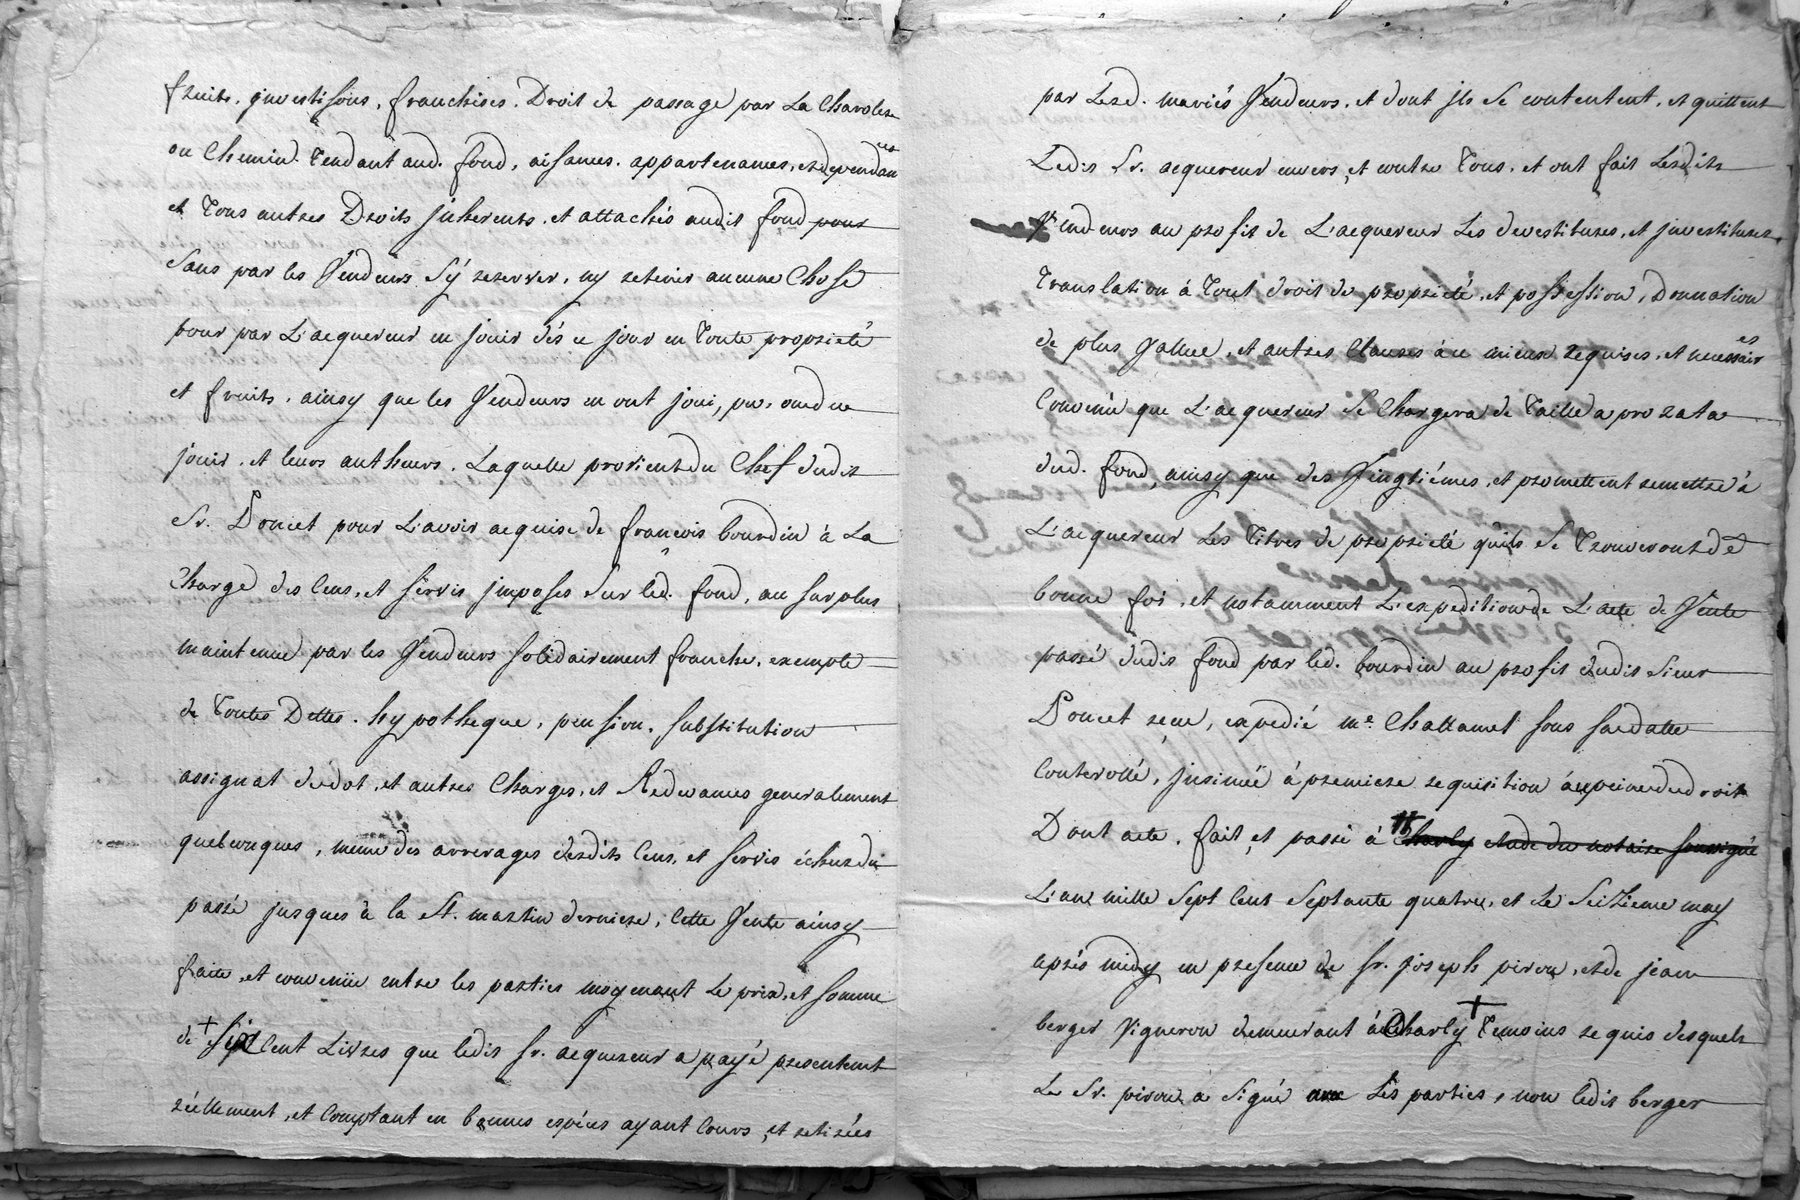 fruits, investisons, franchises, Droit de passage par La Charolere
ou Chemin Tendant aud. fond, aisances, appartenances, et dependances
et Tous autres Droits jnherents, et attachés audit fond pour
Sans par les Vendeurs S'y reserver, ny retenir aucune Chose
pour par L'acquereur en jouir dés ce jour en Toute proprieté
et fruits, ainsy que les Vendeurs en ont joui, pu, ou du
jouir, et leurs autheurs. Laquelle provient du Chef dudit
Sr. Poncet pour L'avoir acquise de françois bourdin à La
Charge des Cens, et Servis jmposes Sur led. fond, au surplus
maintenue par les Vendeurs Solidairement franche, exempte
de Toutes Dettes, hypotheque, pension, substitution
assignat de dot, et autres Charges, et Redevances generalement
quelconques, meme des arrerages desdits Cens, et Servis échus du
passé jusques à la St. martin derniere, Cette Vente ainsy
faite, et convenüe entre les parties moyenant Le prix, et Somme
de + Six Cent Livres que ledit Sr. acquereur a payé presentemt
réellement, et Comptant en bonnes espéces ayant Cours, et retirées
par Lesd. mariés Vendeurs, et dont jls Se contentent, et quittent
Ledit Sr. acquereur envers, et contre Tous, et ont fait Lesdits
Vendeurs au profit de L'acquereur Les devestitures, et jnvestitures,
Translation à Tout droit de proprieté, et possession, Donnation
de plus Vallue, et autres Clauses à ce mieux requises, et necessaires
Convenu que L'acquereur Se Chargera de Taille a pro rata
dud. fond, ainsy que des Vingtiémes, et promettent remettre à
L'acquereur Les Titres de proprieté qu'ils Se Trouveront de
bonne foi, et notamment L'expedition de L'acte de Vente
passé dudit fond par led. bourdin au profit dudit Sieur
Poncet reçue, expedié me. Chattanet sous Sa datte
Conterollé, jnsinuë à premiere requisition à peine dud. droit
Dont acte, fait, et passé à Charly etude du notaire soussigné
L'an mille Sept Cent Septante quatre, et Le Seizieme may
aprés midy en presence de Sr. joseph piron, et de jean
berger Vigneron demeurant à Charly + Temoins requis desquels
Le Sr. piron a Signé Les parties, non ledit berger